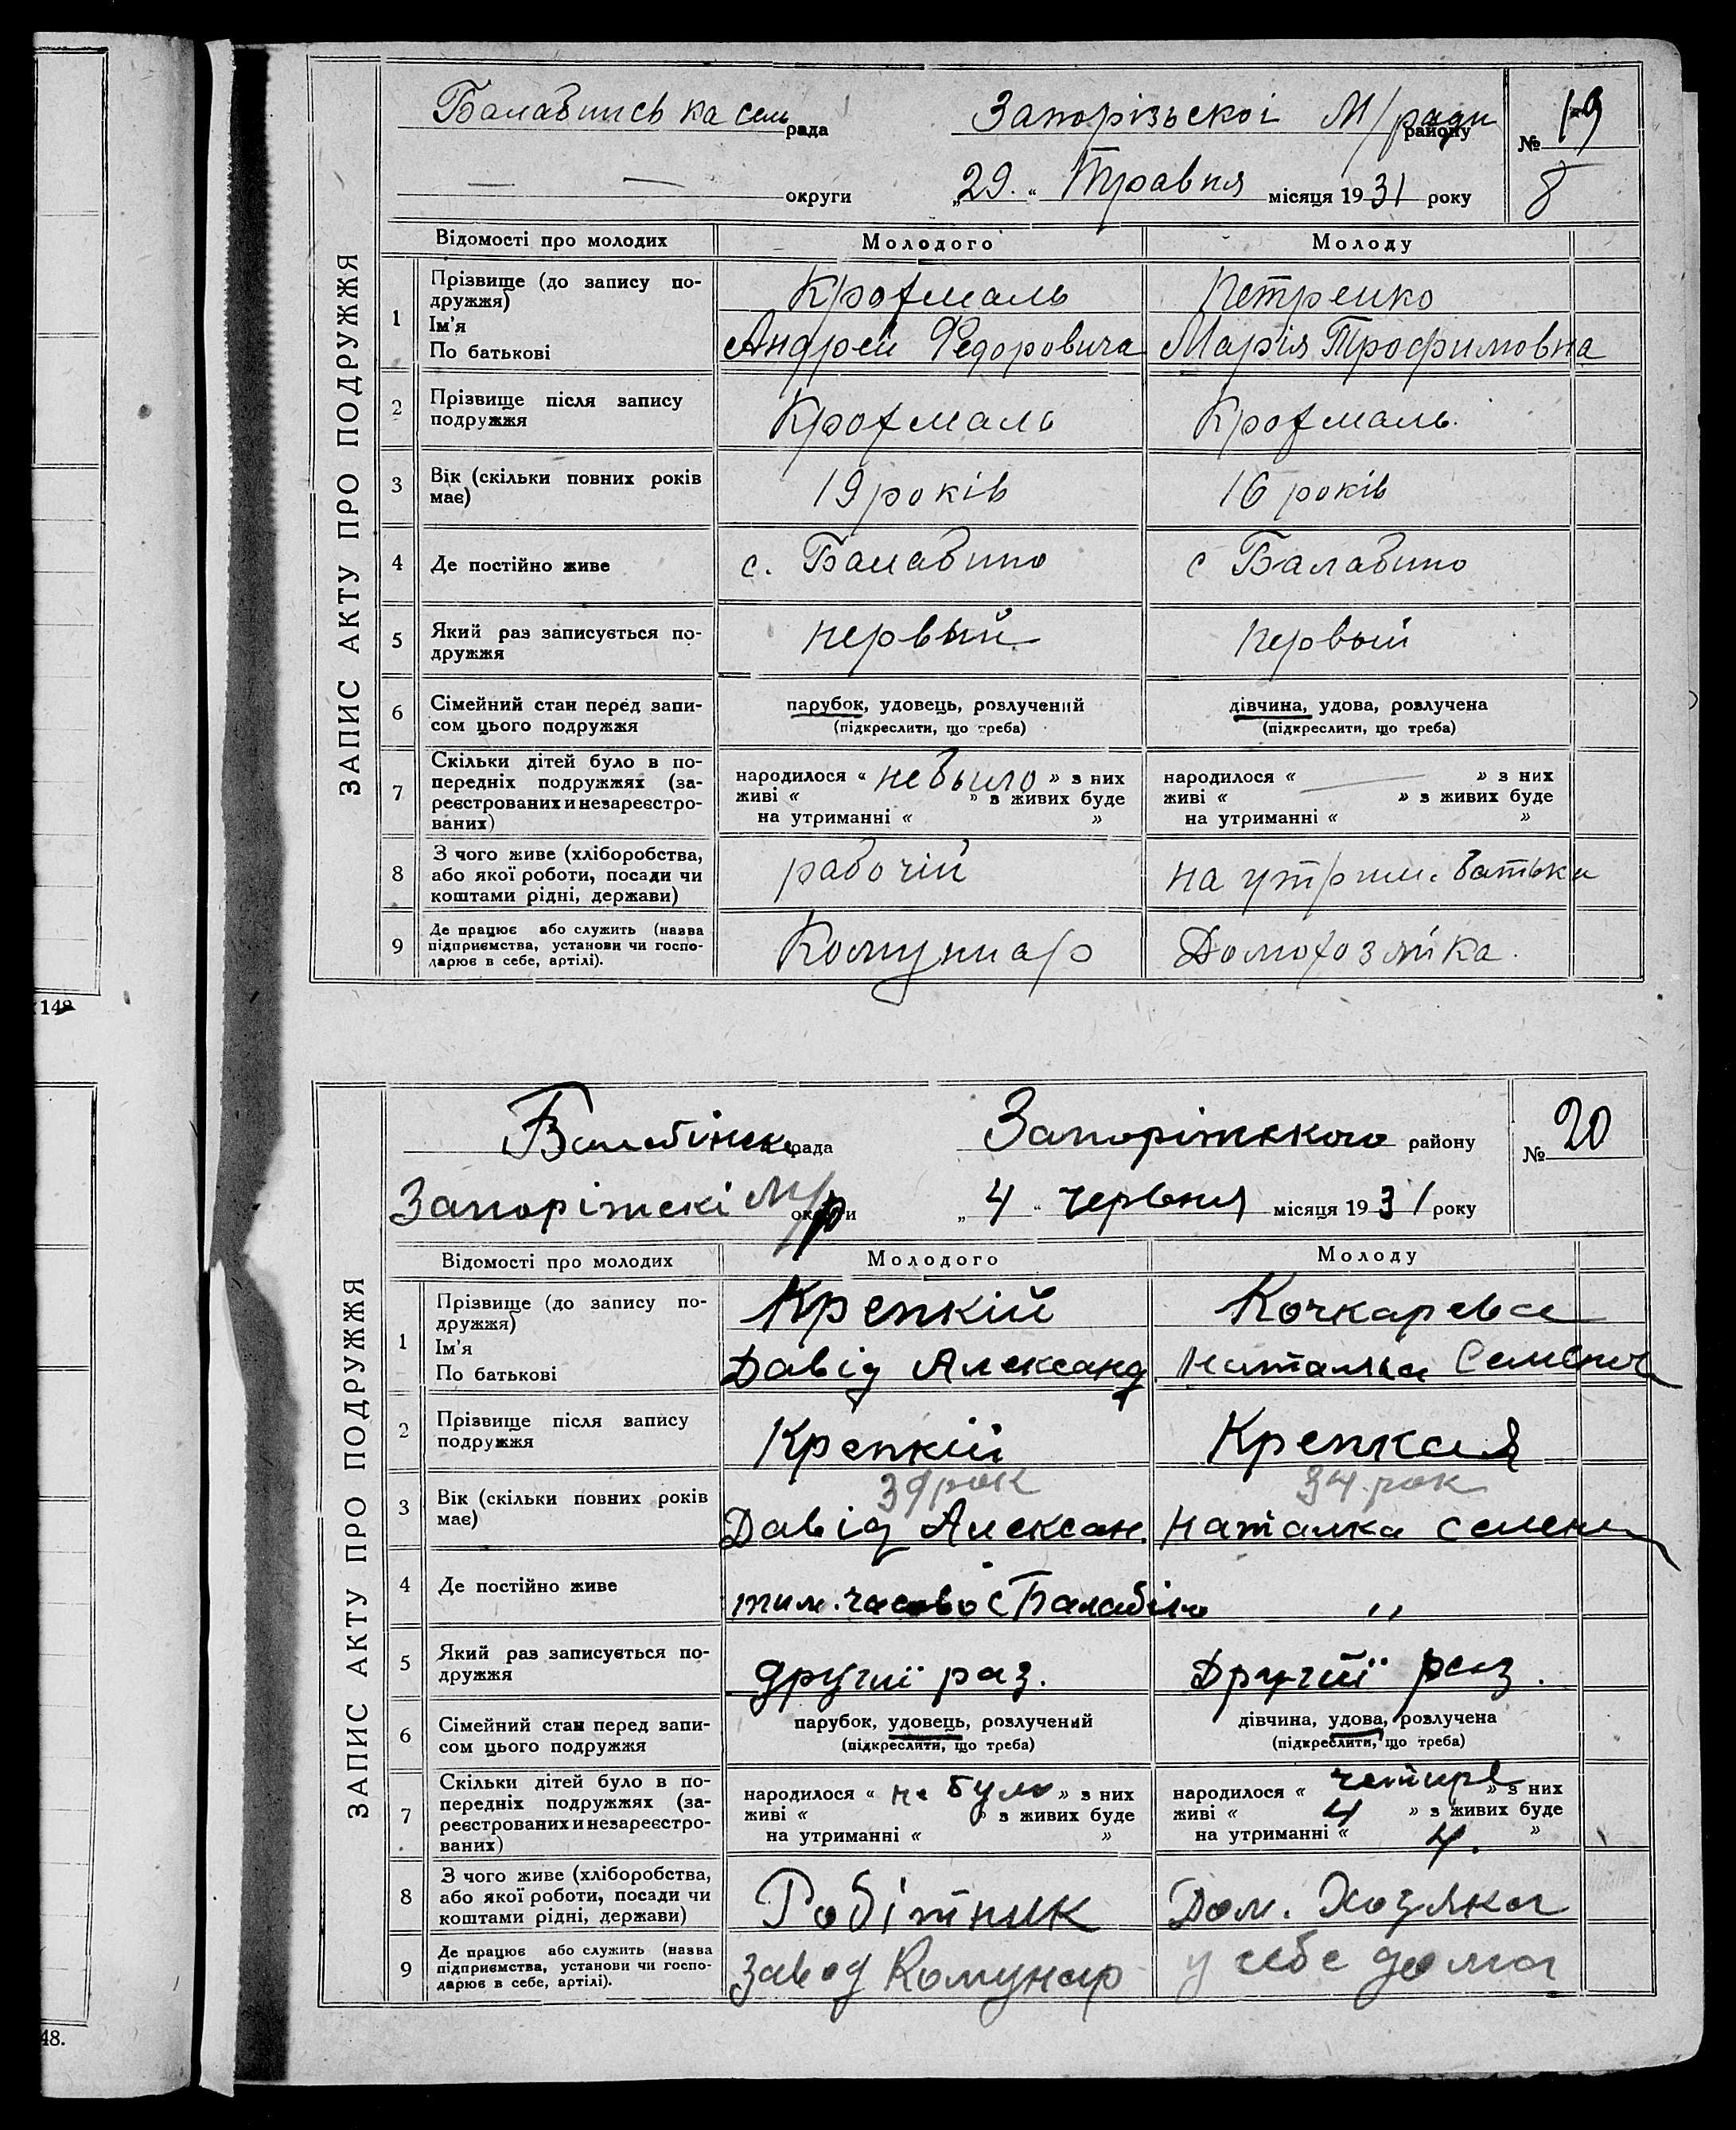 148
48.
ЗАПИС АКТУ ПРО ПОДРУЖЖЯ
Балавинсь ка сель рада Запорізьскоі М/ради району № 19
— — округи „29. “ Травня місяця 1931 року 8
Відомості про молодих Молодого Молоду
1 Прізвище (до запису по-
дружжя)
Ім’я
По батькові
Крохмаль Петренко
Андрей Федоровича Марія Трофимовна
2 Прізвище після запису
подружжя
Крохмаль Крохмаль.
3 Вік (скільки повних років
має)
19 років 16 років
4 Де постійно живе с. Балабино с Балабино
5 Який раз записується по-
дружжя
первый первый
6 Сімейний стан перед запи-
сом цього подружжя
парубок, удовець, розлучений дівчина, удова, розлучена
(підкреслити, що треба) (підкреслити, що треба)
7 Скільки дітей було в по-
передніх подружжях (за-
реєстрованих и незареєстро-
ваних)
народилося « небыло » з них народилося « — » з них
живі « » з живих буде живі « » з живих буде
на утриманні « » на утриманні « »
8 З чого живе (хліборобства,
або якої роботи, посади чи
коштами рідні, держави)
рабочій на утрим. батька
9 Де працює або служить (назва
підприємства, установи чи госпо-
дарює в себе, артілі).
Комунар Домохозяйка.
ЗАПИС АКТУ ПРО ПОДРУЖЖЯ
Балабінска рада Запоріжского району № 20
Запоріжскі М/р округи „ 4 “ червня місяця 1931 року
Відомості про молодих Молодого Молоду
1 Прізвище (до запису по-
дружжя)
Ім’я
По батькові
Крепкій Кочкарева
Давід Александ. Наталка Семен
2 Прізвище після запису
подружжя
Крепкій Крепкая
3 Вік (скільки повних років
має)
39 рок 34 рок
Давід Алексан. Наталка Семен
4 Де постійно живе тим. часово с Балабіно „
5 Який раз записується по-
дружжя
другий раз. Другий раз.
6 Сімейний стан перед запи-
сом цього подружжя
парубок, удовець, розлучений дівчина, удова, розлучена
(підкреслити, що треба) (підкреслити, що треба)
7 Скільки дітей було в по-
передніх подружжях (за-
реєстрованих и незареєстро-
ваних)
народилося « не було » з них народилося « четире » з них
живі « » з живих буде живі « 4 » з живих буде
на утриманні « » на утриманні « 4. »
8 З чого живе (хліборобства,
або якої роботи, посади чи
коштами рідні, держави)
Робітник Дом. Хозяка
9 Де працює або служить (назва
підприємства, установи чи госпо-
дарює в себе, артілі).
завод Комунар у себе дома